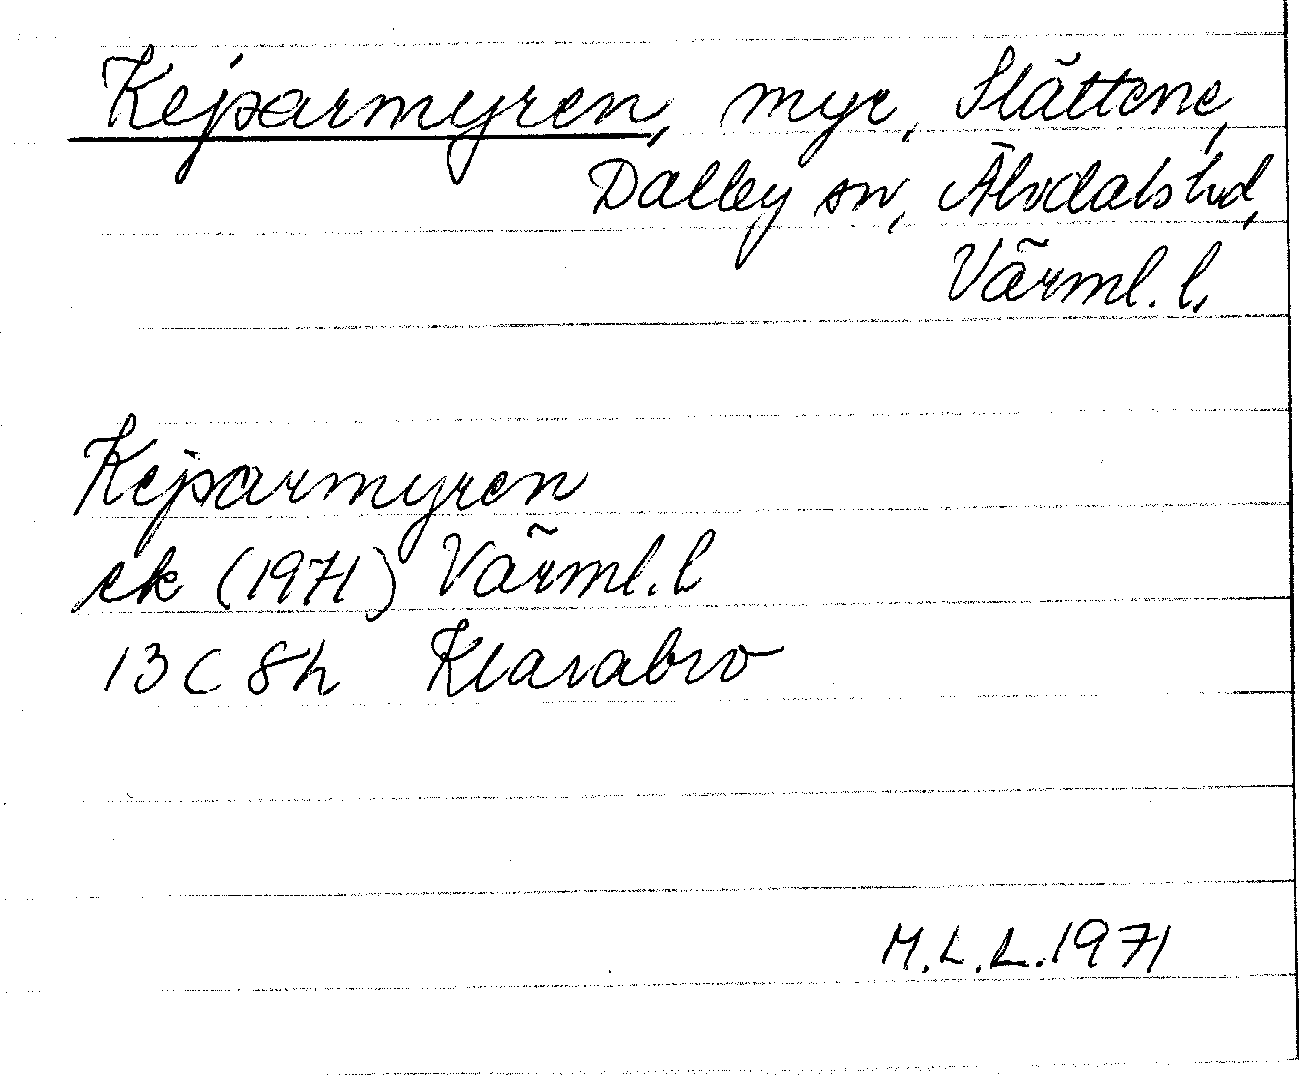 Kejsarmyren, myr, Slättene,
Dalby sn, Älvdals hd,
Värml. l.
Kejsarmyren
ek (1971) Värml. l
13 C 8h Klarabro
M.L.L. 1971